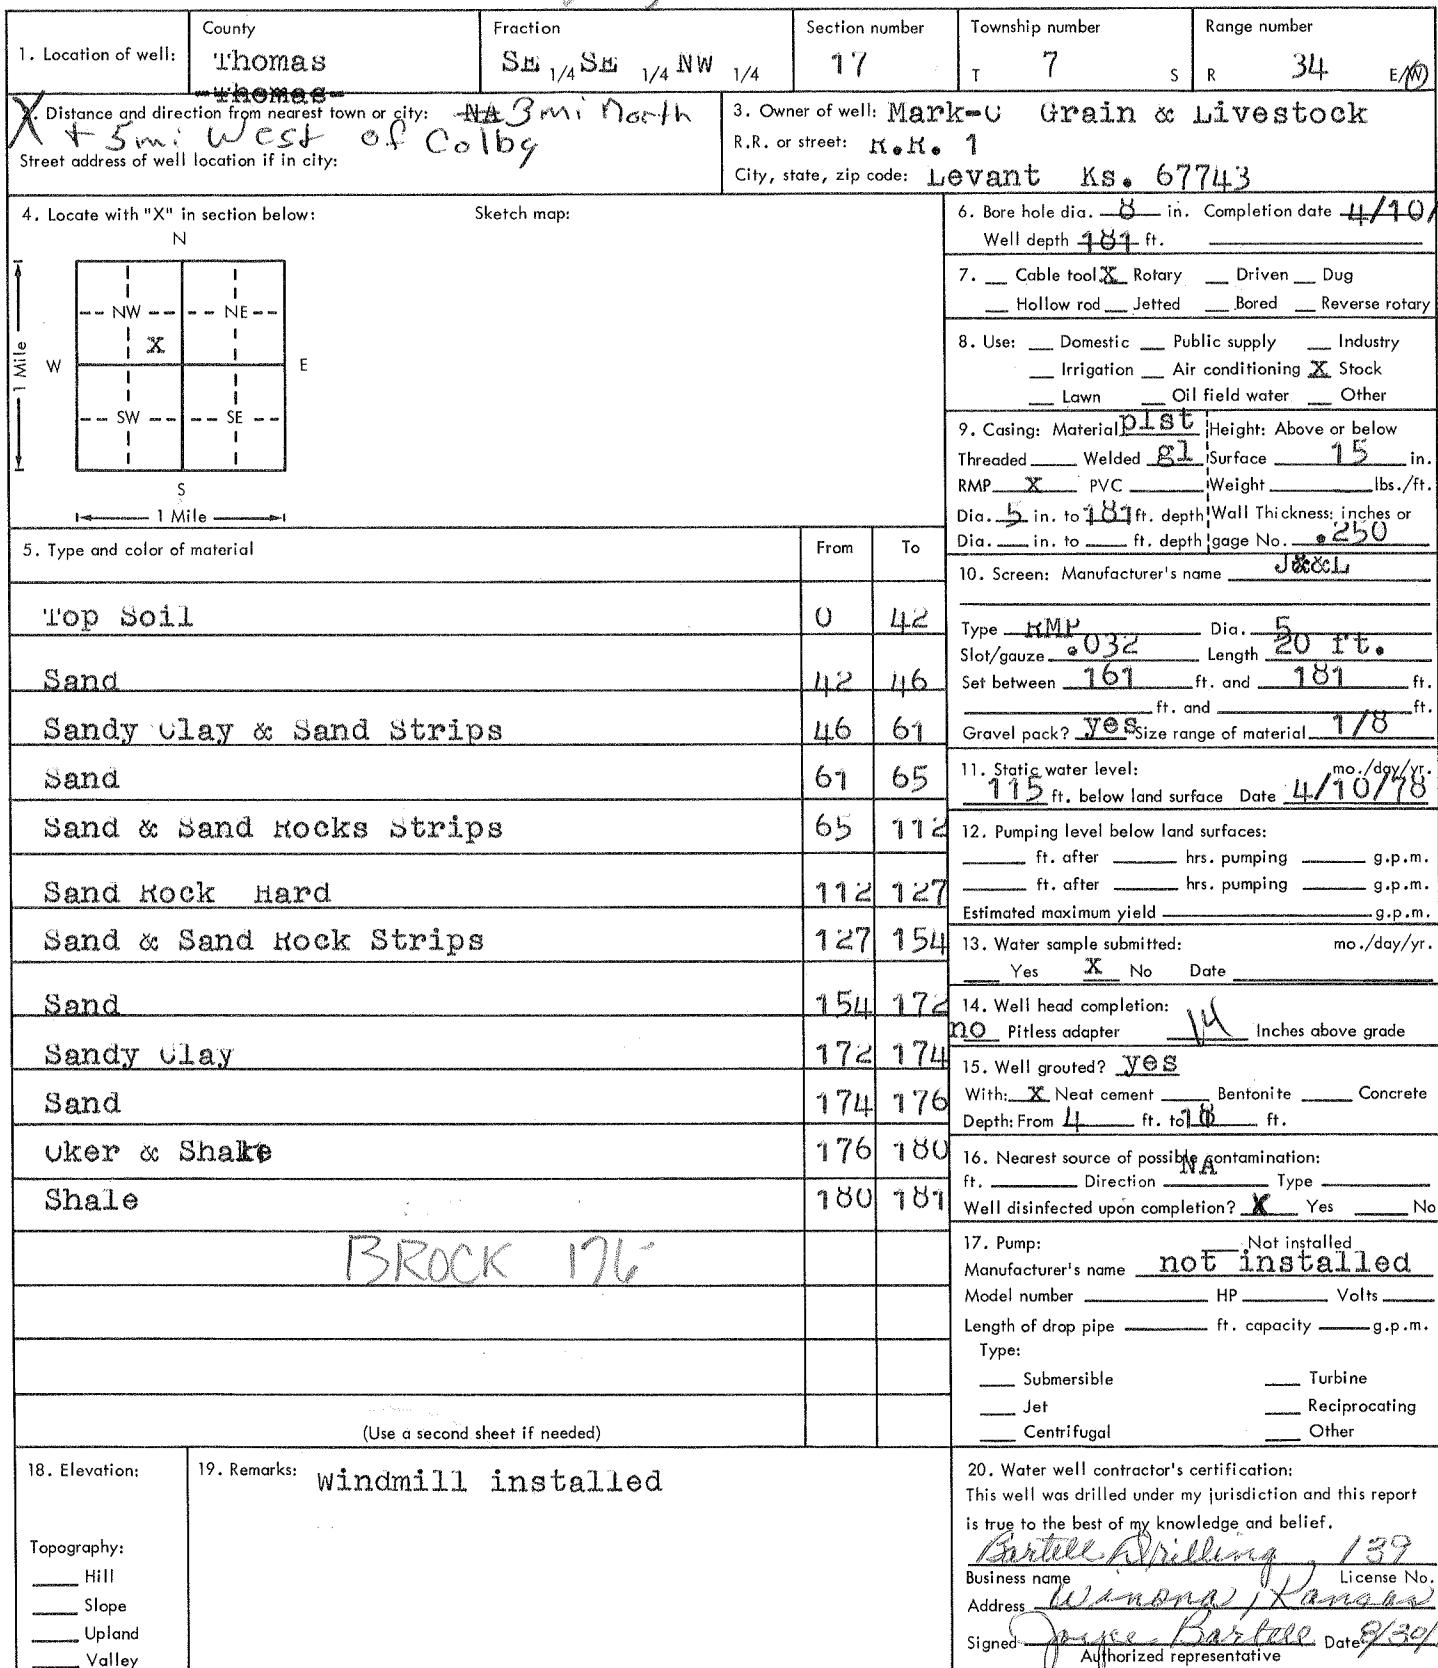 County
Fraction
Section number
Township number
Range number
1. Location of well:
Thomas
SE 1/4 SE 1/4 NW 1/4
17
T 7 S
R 34 E/W
Thomas
2. Distance and direction from nearest town or city: NA 3 mi North
+ 5 mi West of Colby
Street address of well location if in city:
3. Owner of well: Mark-C Grain & Livestock
R.R. or street: R.R. 1
City, state, zip code: Levant Ks. 67743
4. Locate with "X" in section below:
Sketch map:
N
NW NE
X
W E
SW SE
S
1 Mile
1 Mile
5. Type and color of material From To
Top Soil 0 42
Sand 42 46
Sandy Clay & Sand Strips 46 61
Sand 61 65
Sand & Sand Rocks Strips 65 112
Sand Rock Hard 112 127
Sand & Sand Rock Strips 127 154
Sand 154 172
Sandy Clay 172 174
Sand 174 176
Oker & Shale 176 180
Shale 180 181
BROCK 176
(Use a second sheet if needed)
6. Bore hole dia. 8 in. Completion date 4/10/
Well depth 181 ft.
7. Cable tool X Rotary Driven Dug
Hollow rod Jetted Bored Reverse rotary
8. Use: Domestic Public supply Industry
Irrigation Air conditioning X Stock
Lawn Oil field water Other
9. Casing: Material plst Height: Above or below
Threaded Welded gl Surface 15 in.
RMP X PVC Weight lbs./ft.
Dia. 5 in. to 181 ft. depth Wall Thickness: inches or
Dia. in. to ft. depth gage No. .250
10. Screen: Manufacturer's name J&L
Type RMP Dia. 5
Slot/gauze .032 Length 20 ft.
Set between 161 ft. and 181 ft.
ft. and ft.
Gravel pack? yes Size range of material 1/8
11. Static water level: mo./day/yr.
115 ft. below land surface Date 4/10/78
12. Pumping level below land surfaces:
ft. after hrs. pumping g.p.m.
ft. after hrs. pumping g.p.m.
Estimated maximum yield g.p.m.
13. Water sample submitted: mo./day/yr.
Yes X No Date
14. Well head completion:
no Pitless adapter 14 Inches above grade
15. Well grouted? yes
With: X Neat cement Bentonite Concrete
Depth: From 4 ft. to ft.
16. Nearest source of possible contamination:
NA
ft. Direction Type
Well disinfected upon completion? X Yes No
17. Pump: Not installed
Manufacturer's name not installed
Model number HP Volts
Length of drop pipe ft. capacity g.p.m.
Type:
Submersible Turbine
Jet Reciprocating
Centrifugal Other
18. Elevation:
Topography:
Hill
Slope
Upland
Valley
19. Remarks: Windmill installed
20. Water well contractor's certification:
This well was drilled under my jurisdiction and this report
is true to the best of my knowledge and belief.
Bartell Drilling 139
Business name License No.
Address Winona, Kansas
Signed Joyce Bartell Date 8/30/
Authorized representative